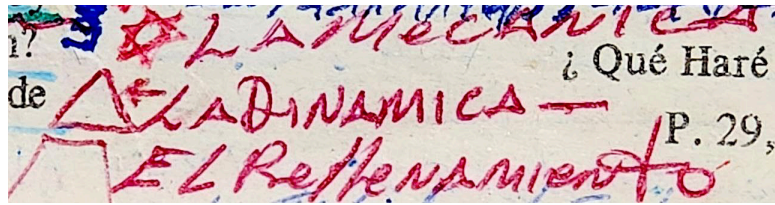 LA MECANICA
n?
¿ Qué Haré
de
LA DINAMICA —
P. 29,
EL Rellenamiento